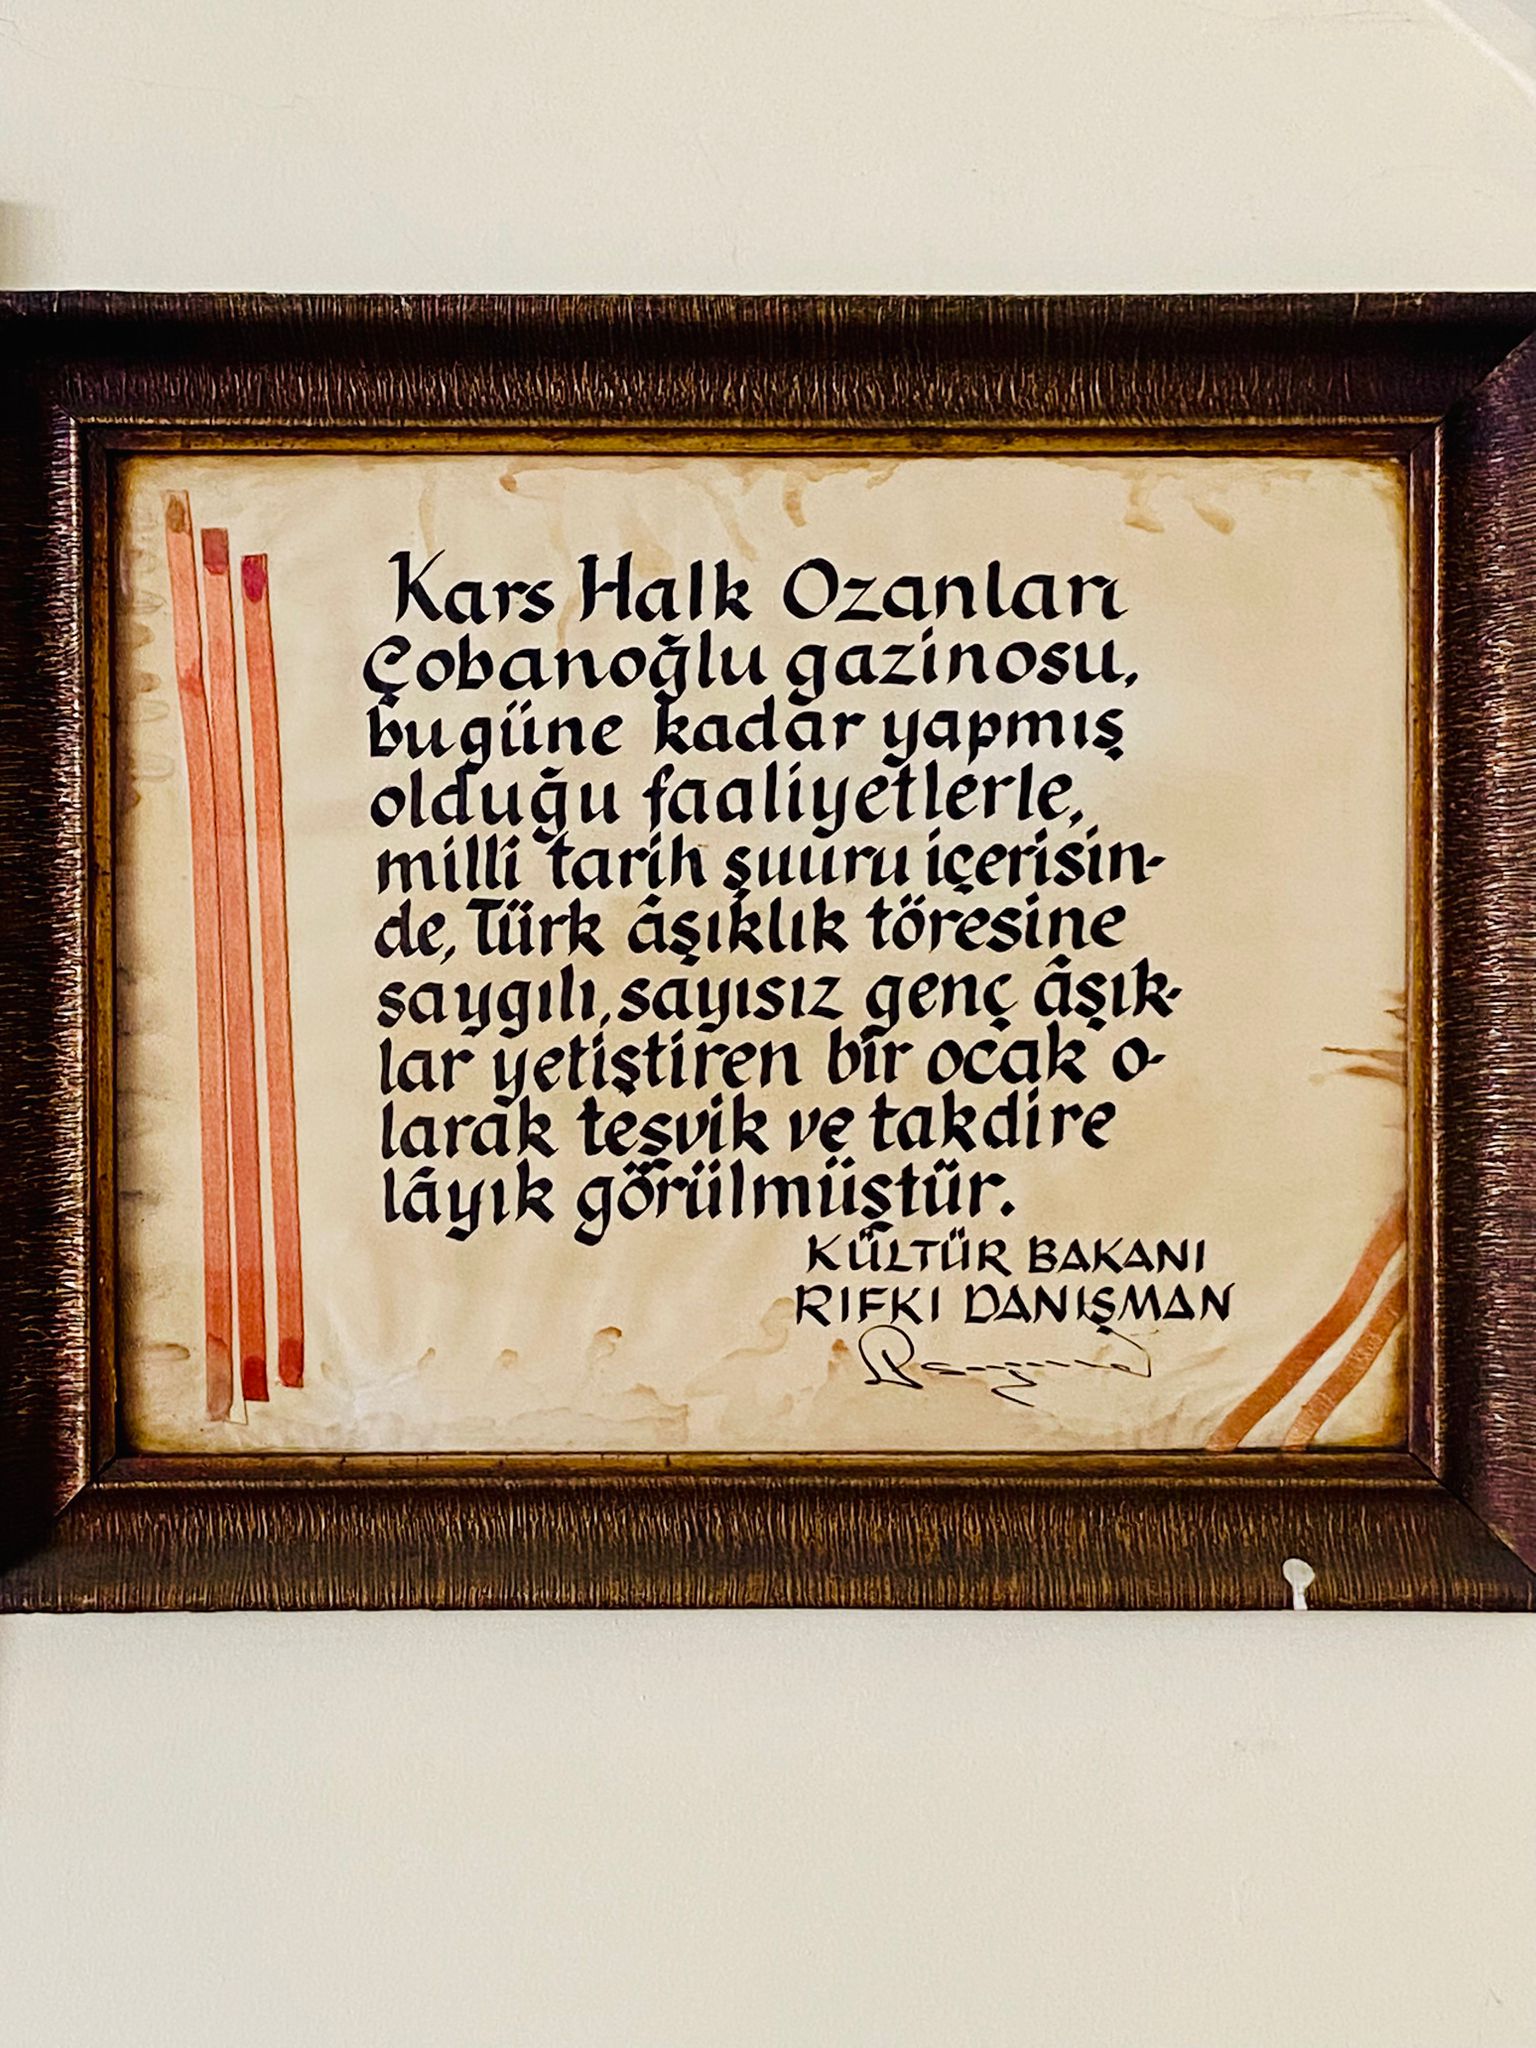 Kars Halk Ozanları
Çobanoğlu gazinosu,
bugüne kadar yapmış
olduğu faaliyetlerle,
milli tarih şuuru içerisin-
de, Türk âşıklık töresine
saygılı, sayısız genç âşık-
lar yetiştiren bir ocak o-
larak teşvik ve takdire
lâyık görülmüştür.
KÜLTÜR BAKANI
RIFKI DANIŞMAN